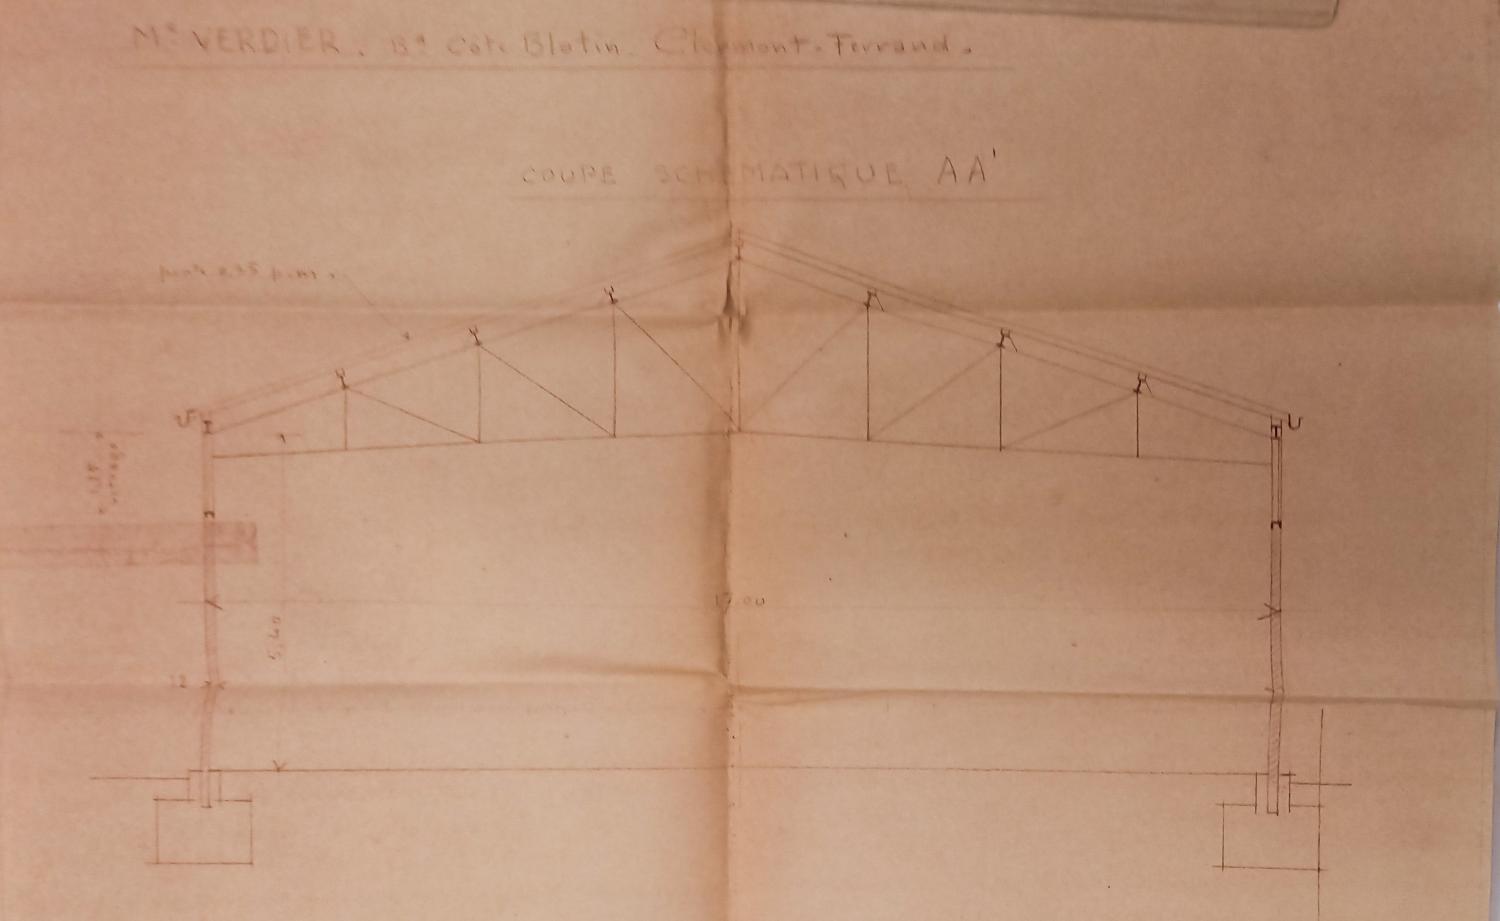 Mr VERDIER. Bd Cote Blatin. Clermont-Ferrand.
COUPE SCHEMATIQUE AA'
pente 0.35 p.m.
vitrage
17.00
5,40
12